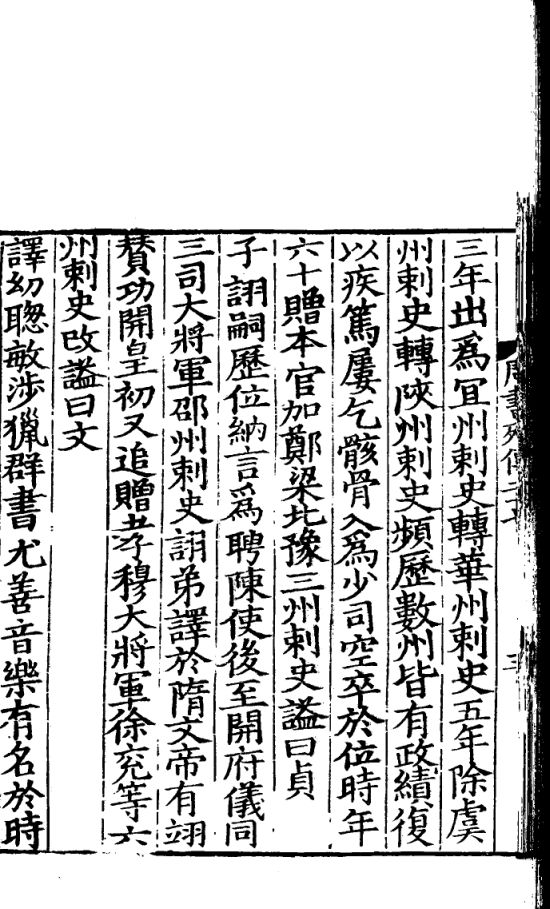 三年出爲宜州刺史轉華州刺史五年除虞
州刺史轉陝州刺史頻歷數州皆有政績復
以疾篤屢乞骸骨入爲少司空卒於位時年
六十贈本官加鄭梁北豫三州刺史謚曰貞
子詡嗣歷位納言爲聘陳使後至開府儀同
三司大將軍邵州刺史詡弟譯於隋文帝有翊
賛功開皇初又追贈孝穆大將軍徐兖等六
州刺史改謚曰文
譯幼聦敏涉獵群書尤善音樂有名於時